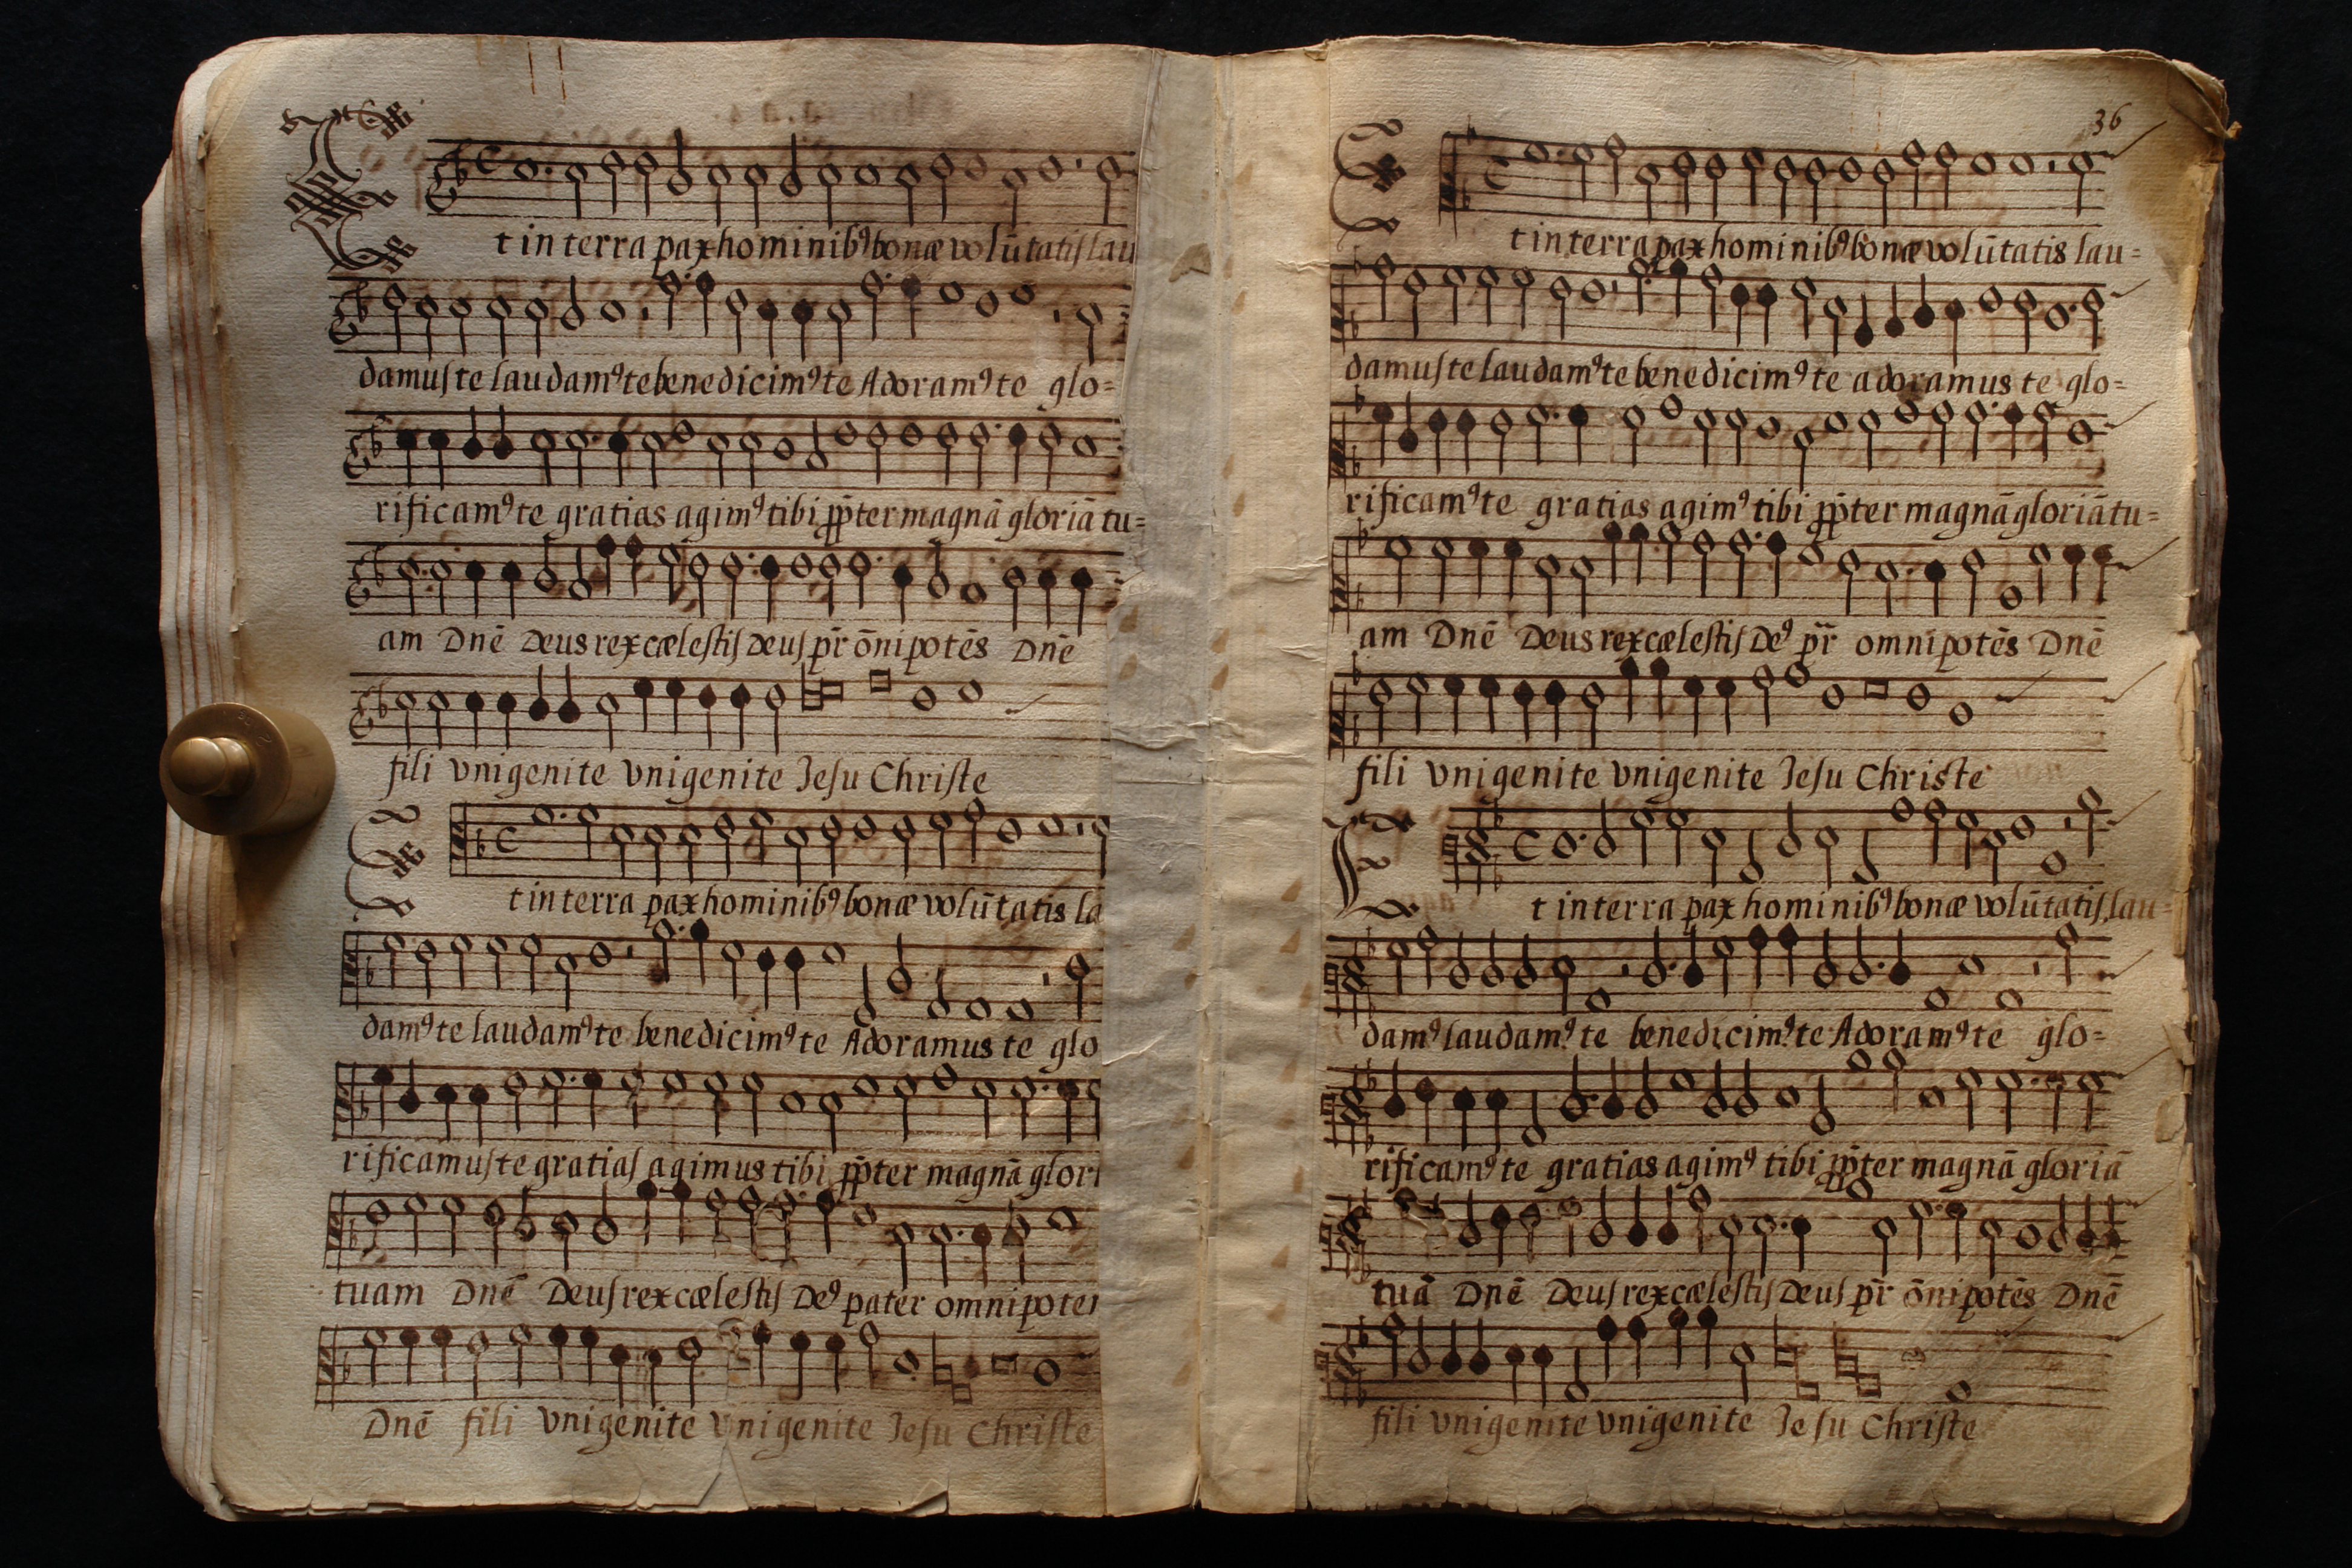 t in terra pax hominibꝰ bonæ volūtatis lau
damus te laudamꝰ te benedicimꝰ te Adoramꝰ te glo=
rificamꝰ te gratias agimꝰ tibi ꝓp̄ter magnā gloriā tu=
am Dnē Deus rex cælestis Deus pr̄ ōnipotēs Dnē
fili vnigenite vnigenite Jesu Christe
t in terra pax hominibꝰ bonæ volūtatis la
damꝰ te laudamꝰ te benedicimꝰ te Adoramus te glo
rificamus te gratias agimus tibi ꝓp̄ter magnā glori
tuam Dnē Deus rex cælestis Deꝰ pater omnipoten
Dnē fili vnigenite vnigenite Jesu Christe
36
t in terra pax hominibꝰ bonæ volūtatis lau=
damus te laudamꝰ te benedicimꝰ te adoramus te glo=
rificamꝰ te gratias agimꝰ tibi ꝓp̄ter magnā gloriā tu=
am Dnē Deus rex cælestis Deꝰ pr̄ omnipotēs Dnē
fili vnigenite vnigenite Jesu Christe
t in terra pax hominibꝰ bonæ volūtatis lau=
damꝰ laudamꝰ te benedicimꝰ te Adoramꝰ te glo=
rificamꝰ te gratias agimꝰ tibi ꝓp̄ter magnā gloriā
tuā Dnē Deus rex cælestis Deus pr̄ ōnipotēs Dnē
fili vnigenite vnigenite Jesu Christe